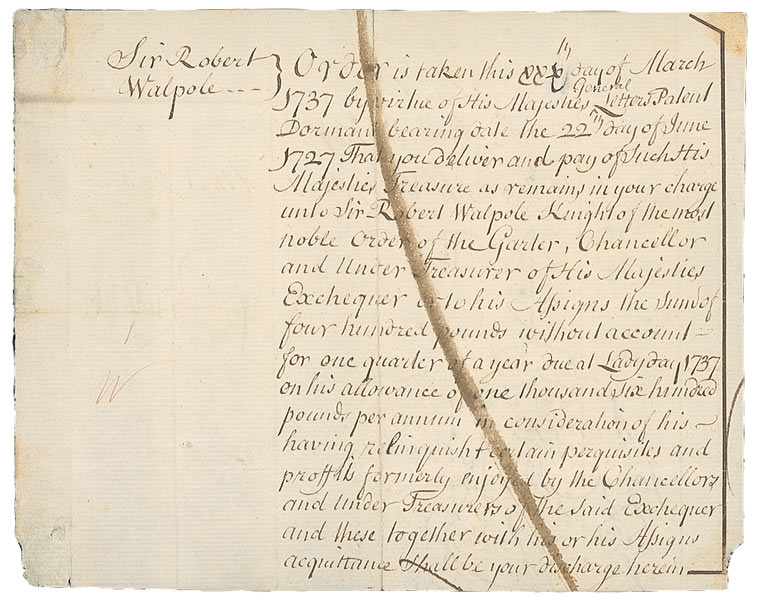 Sir Robert
Walpole ---
Order is taken this xxxth day of March
1737 by virtue of His Majesties General Letters Patent
Dormant bearing date the 22th day of June
1727 That you deliver and pay of Such His
Majesties Treasure as remains in your charge
unto Sir Robert Walpole Knight of the most
noble Order of the Garter, Chancellor
and Under Treasurer of His Majesties
Exchequer or to his Assigns the Sum of
four hundred pounds without account -
for one quarter of a year due at Lady day 1737
on his allowance of one thousand six hundred
pounds per annum in consideration of his -
having relinquisht certain perquisites and
profits formerly enjoyed by the Chancellors
and Under Treasurers of the said Exchequer
and these together with his or his Assigns
acquittance Shall be your discharge herein